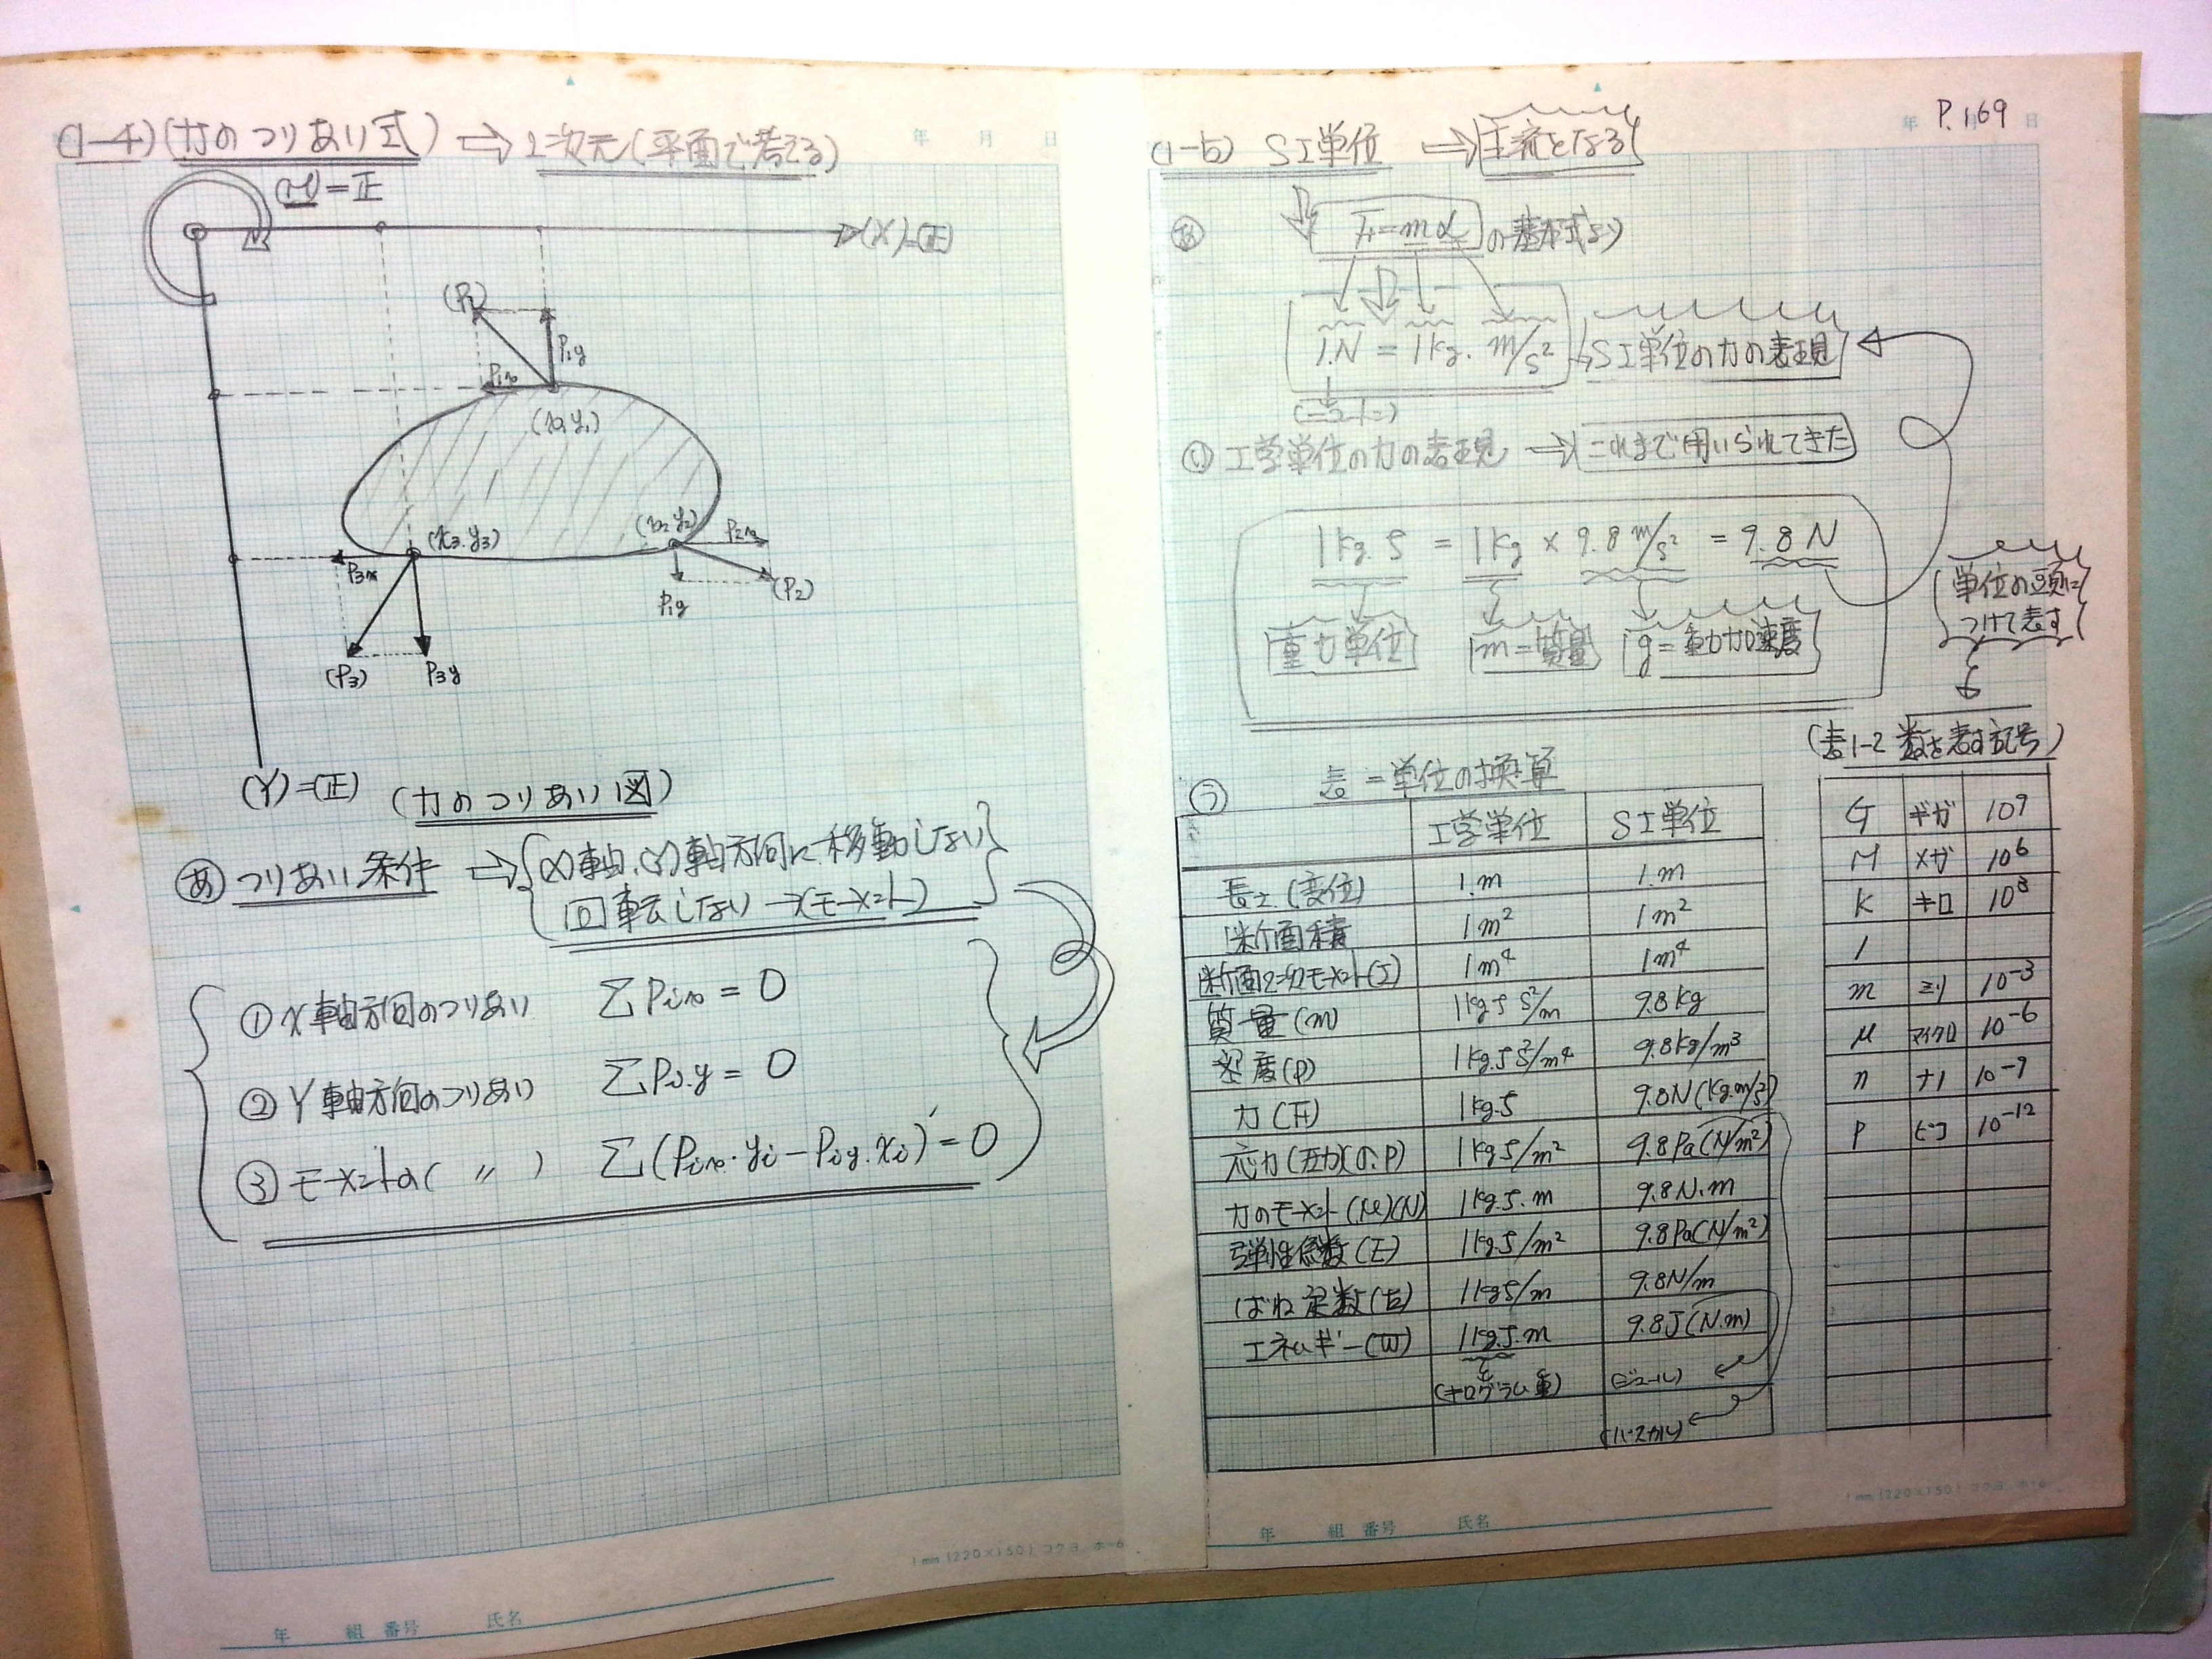 (1-4)(力のつりあい式) ⇒ 2次元(平面で考える)
年 月 日
(M)=正
(X)=(正)
(P1)
P1y
P1x
(x1,y1)
(x3.y3)
(x2 y2)
P2x
P3x
P1y
(P2)
(P3)
P3y
(Y)=(正)
(力のつりあい図)
あ つりあい条件 ⇒ (X)軸,(Y)軸方向に移動しない
回転しない→(モーメント)
① X軸方向のつりあい ΣPix = 0
② Y軸方向のつりあい ΣPi.y = 0
③ モーメントの( 〃 ) Σ(Pix・yi−Piy.xi) = 0
1mm (220×150) コクヨ ホ-6
年 組 番号 氏名
年 月 日
P.169
(1-5) SI単位 ⇒ 主流となる
あ F=mα の基本式より
1.N = 1kg. m/s² → SI単位の力の表現
(ニュートン)
い 工学単位の力の表現 → これまで用いられてきた
1kg.f = 1kg × 9.8 m/s² = 9.8N
重力単位 m=質量 g=重力加速度
単位の頭に
つけて表す
(表1-2 数を表す記号)
う 表=単位の換算
工学単位 SI単位
長さ(変位) 1.m 1.m
断面積 1m² 1m²
断面2次モーメント(I) 1m⁴ 1m⁴
質量(m) 1kgf s²/m 9.8kg
密度(ρ) 1kg.f s²/m⁴ 9.8kg/m³
力(F) 1kg.f 9.8N(kg.m/s²)
応力(圧力)(σ.P) 1kgf/m² 9.8Pa(N/m²)
力のモーメント(M)(N) 1kg.f.m 9.8N.m
弾性係数(E) 1kg.f/m² 9.8Pa(N/m²)
ばね定数(k) 1kgf/m 9.8N/m
エネルギー(W) 1kg.f.m 9.8J(N.m)
(キログラム重) (ジュール)
(パスカル)
G ギガ 10⁹
M メガ 10⁶
K キロ 10³
1
m ミリ 10⁻³
μ マイクロ 10⁻⁶
n ナノ 10⁻⁹
P ピコ 10⁻¹²
1mm (220×150) コクヨ ホ-6
年 組 番号 氏名